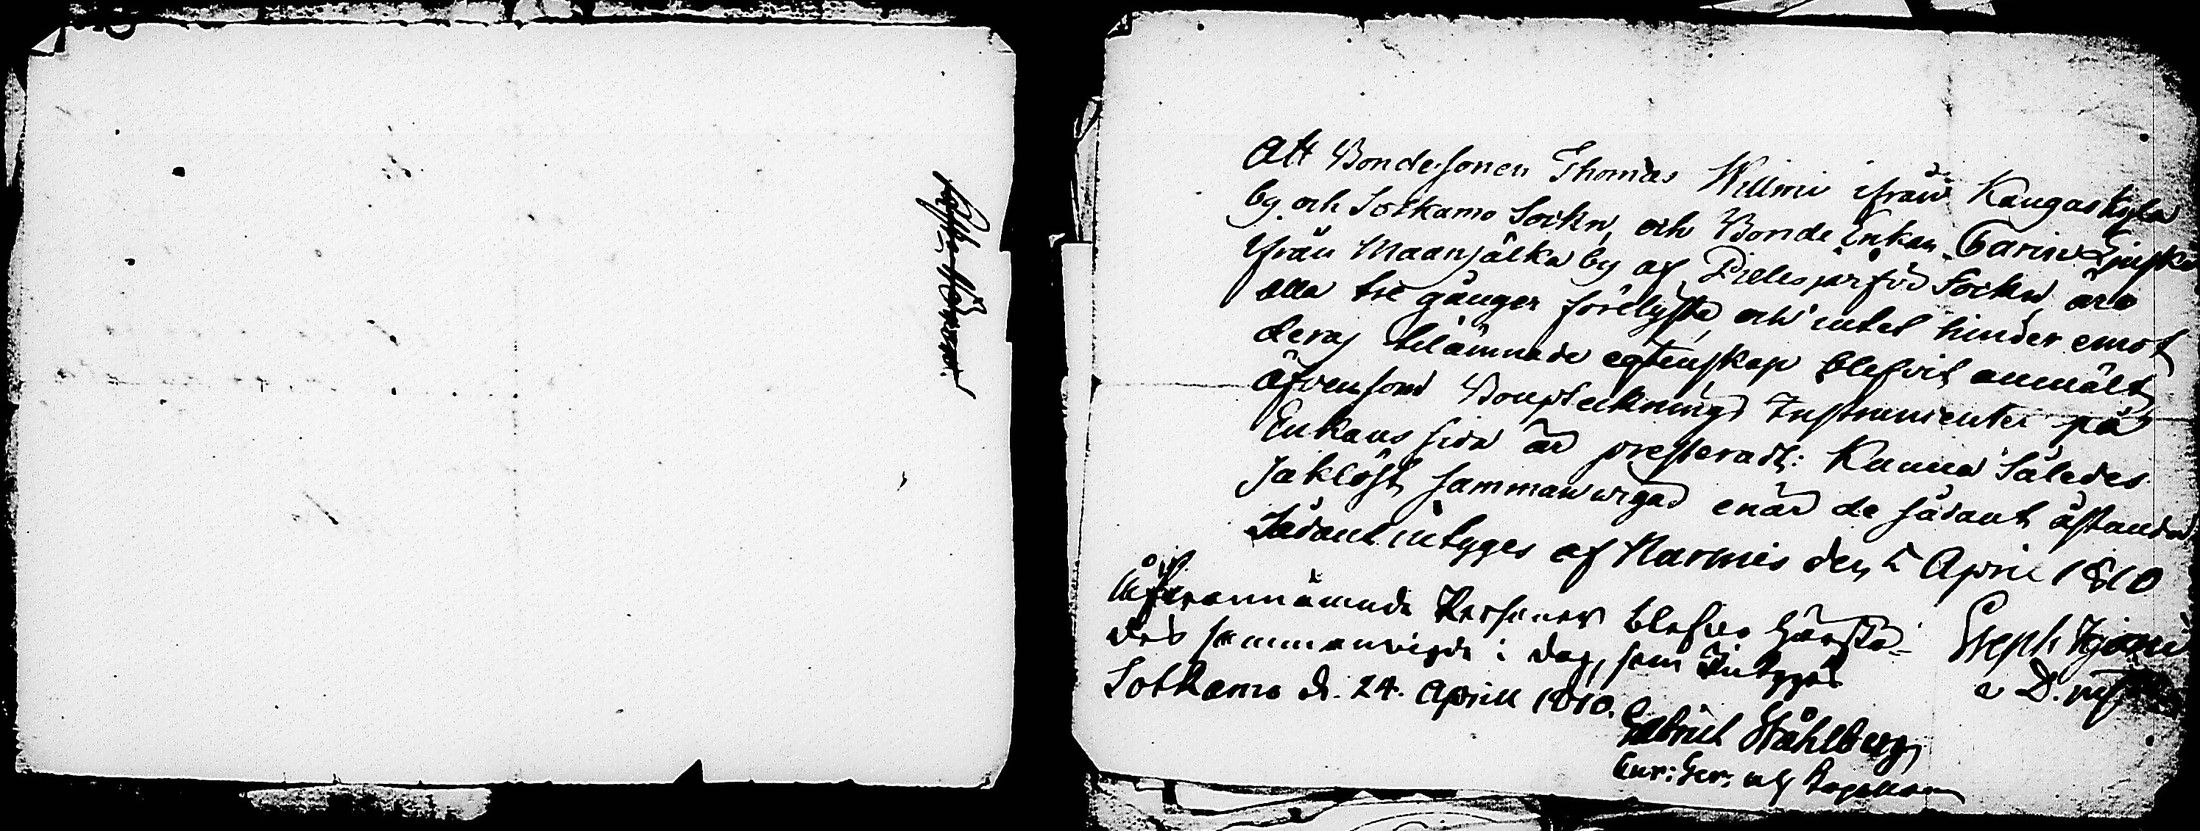 Att Bondesonen Thomas Willmi ifrån Kangaskylä
by och Sotkamo Sockn, och Bonde Enkan Carin
ifrån Maanjälka by af Pielisjärfvi Sockn, äro
alla tre gånger förelyste, och intet hinder emot
deras tilämnade egtenskap blefvit anmält,
äfvensom Boupteknings Instrumentet på
Enkans sida är presteradt: Kunna således
saklöst sammanwigas enär de sådant åstunda
Sådant intyges af Nurmis den 5 April 1810
Steph
a D.
Åfvannämnde Personer blefvo härstä-
des sammanvigde i dag, som Intygas
Sotkamo d. 24. Aprill 1810.
Gabriel Ståhlberg
Cur: Ger: och Capellan